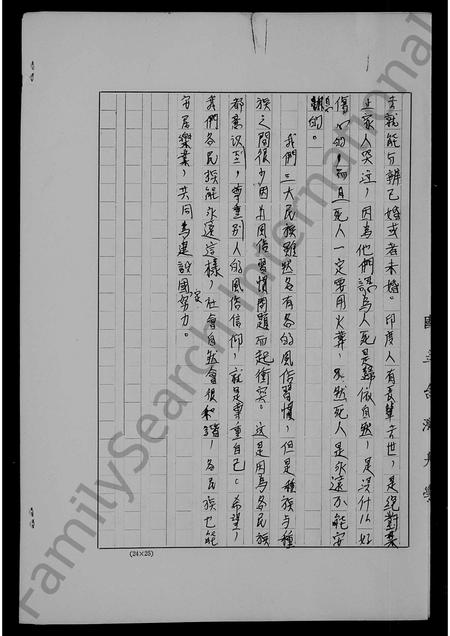 去就能分辨已婚或者未婚。印度人有長輩去世,是絕對禁
止家人哭泣,因為他們認為人死是歸依自然,是沒什么好
傷心的,而且死人一定要用火葬,不然死人是永遠不能安
息的。
我們三大民族雖然各有各的風俗習慣,但是種族与種
族之間很少因为風俗習慣問題而起衝突。這是因為各民族
都意识到,尊重別人的風俗信仰,就是尊重自己。希望,
我們各民族能永遠這樣,社會自然會很和諧,各民族也能
安居樂業,共同為建設國家努力。
國立台灣大學
(24×25)
FamilySearch International